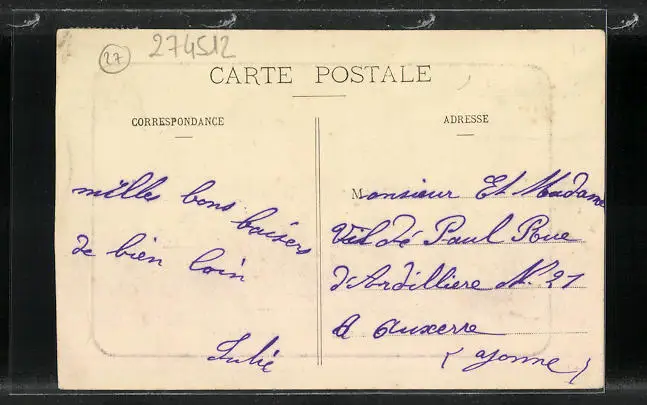 27 274512
CARTE POSTALE
CORRESPONDANCE
ADRESSE
milles bons baisers
de bien loin
Julie
Monsieur Et Madame
Paul Rue
d'Ardilliere N. 21
a auxerre
(yonne)